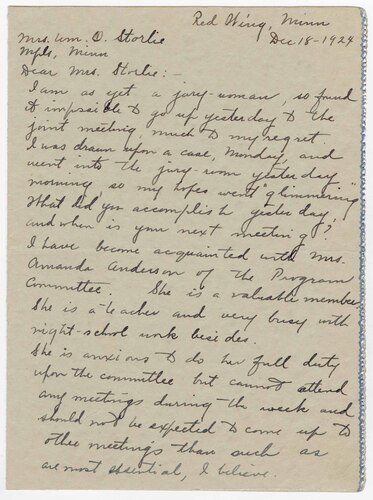 Red Wing, Minn
Dec 18-1924
Mrs. Wm. O. Storlie
Mpls, Minn
Dear Mrs. Storlie:-
I am as yet a jury-woman, so found
it impssible to go up yesterday to the
joint meeting, much to my regret.
I was drawn upon a case, Monday, and
went into the jury-room yesterday
morning, so my hopes went "glimmering"
What did you accomplish yesterday,
and when is your next meeting?
I have become acquainted with Mrs.
Amanda Anderson of the Program
Committee. She is a valuable member.
She is a teacher and very busy with
night-school work besides.
She is anxious to do her full duty
upon the committee but cannot attend
any meetings during the week and
should not be expected to come up to
other meetings than such as
are most essential, I believe.